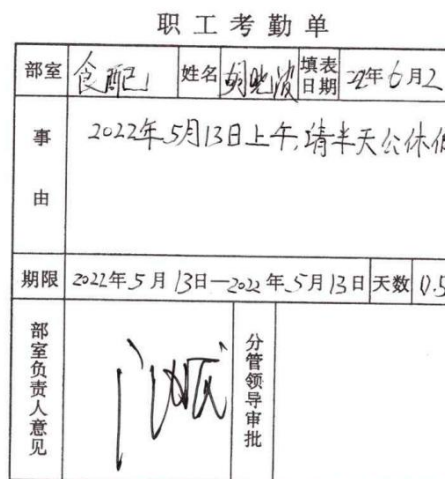 职工考勤单
部室 食配 姓名 胡晓波 填表日期 22年6月2
事由 2022年5月13日上午,请半天公休
期限 2022年5月13日—2022年5月13日 天数 0.5
部室负责人意见 分管领导审批